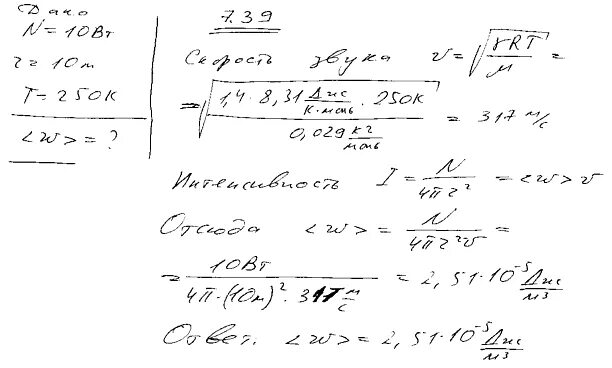 Дано
N = 10Вт
r = 10м
T = 250К
<w> = ?
7.39
Скорость звука v = √(γRT/μ) =
= √(1,4 · 8,31 Дж/(К·моль) · 250К / 0,029 кг/моль) = 317 м/с
Интенсивность I = N/(4πr²) = <w> v
Отсюда <w> = N/(4πr²v) =
= 10Вт/(4π·(10м)² · 317 м/с) = 2,51·10⁻⁵ Дж/м³
Ответ. <w> = 2,51·10⁻⁵ Дж/м³